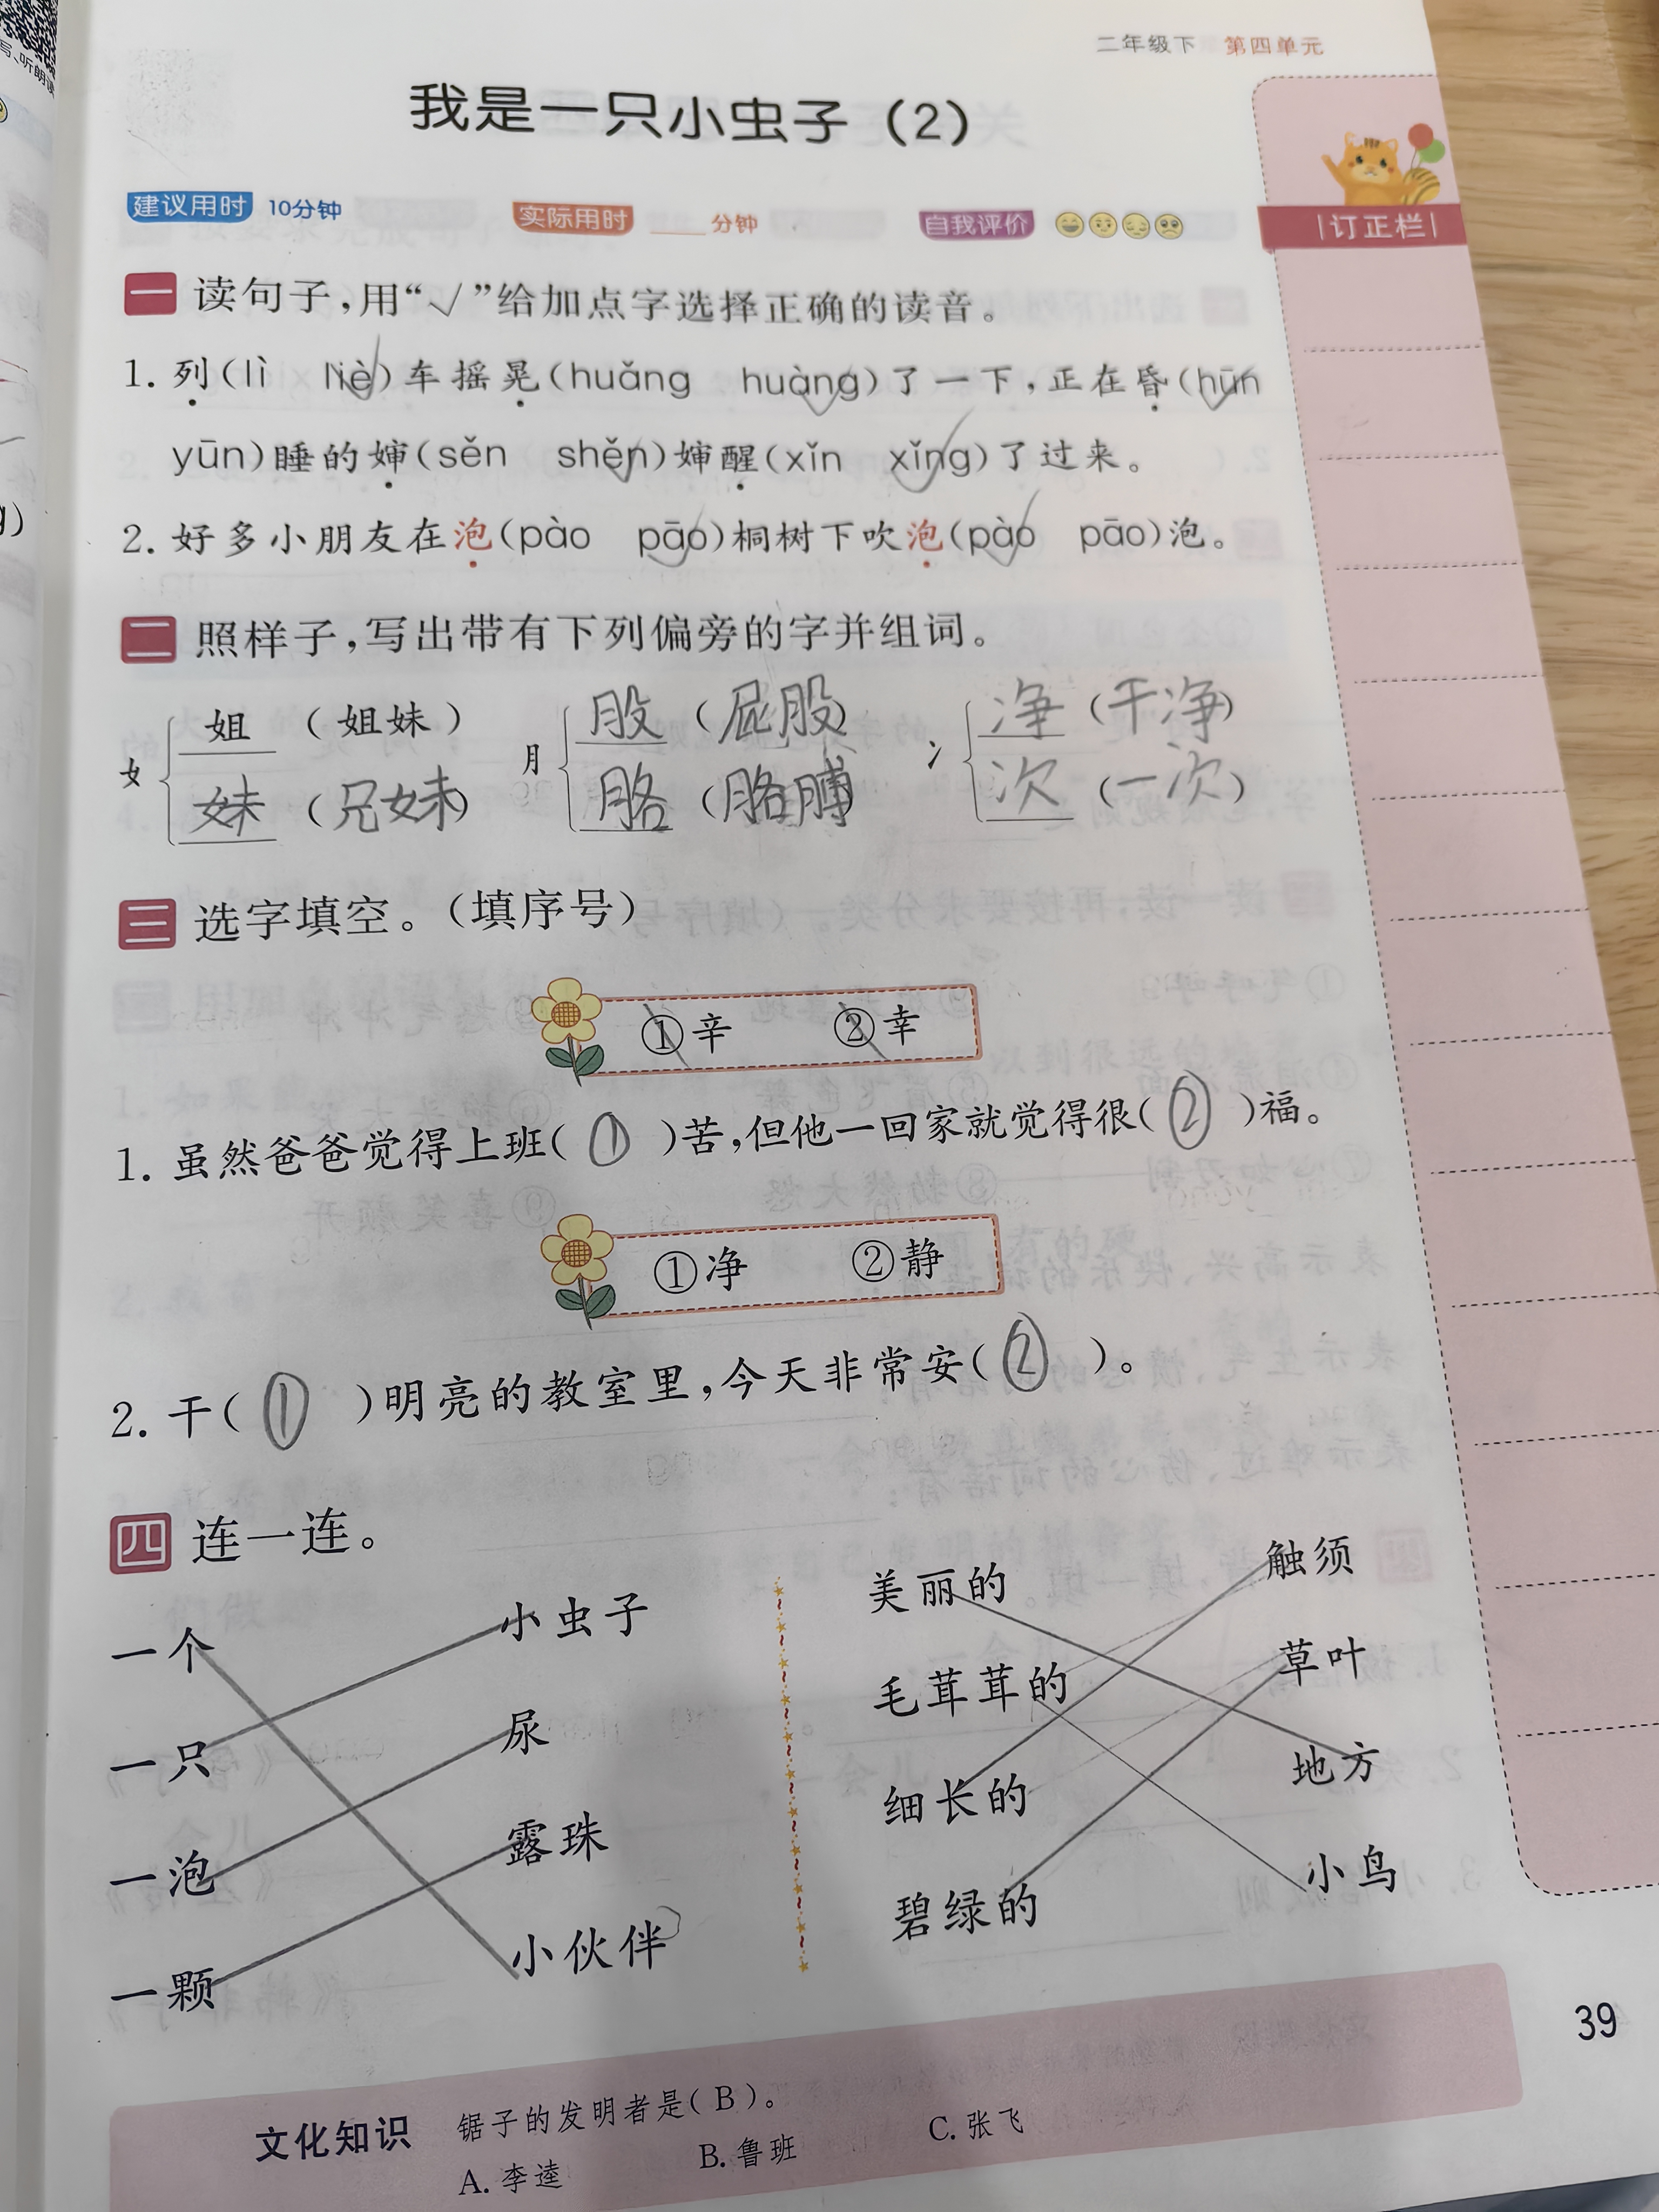 写、听朗读
二年级下 第四单元
我是一只小虫子（2）
建议用时 10分钟 实际用时 ____分钟 自我评价
订正栏
一 读句子，用“√”给加点字选择正确的读音。
1. 列(lì liè)车摇晃(huǎng huàng)了一下，正在昏(hūn
yūn)睡的婶(sěn shěn)婶醒(xǐn xǐng)了过来。
2. 好多小朋友在泡(pào pāo)桐树下吹泡(pào pāo)泡。
二 照样子，写出带有下列偏旁的字并组词。
姐 （姐妹） 股 （屁股） 净 （干净）
女 月 冫
妹 （兄妹） 胳 （胳膊） 次 （一次）
三 选字填空。（填序号）
①辛 ②幸
1. 虽然爸爸觉得上班( ① )苦，但他一回家就觉得很( ② )福。
①净 ②静
2. 干( ① )明亮的教室里，今天非常安( ② )。
四 连一连。
一个 小虫子 美丽的 触须
一只 尿 毛茸茸的 草叶
一泡 露珠 细长的 地方
一颗 小伙伴 碧绿的 小鸟
文化知识 锯子的发明者是( B )。
A. 李逵 B. 鲁班 C. 张飞
39